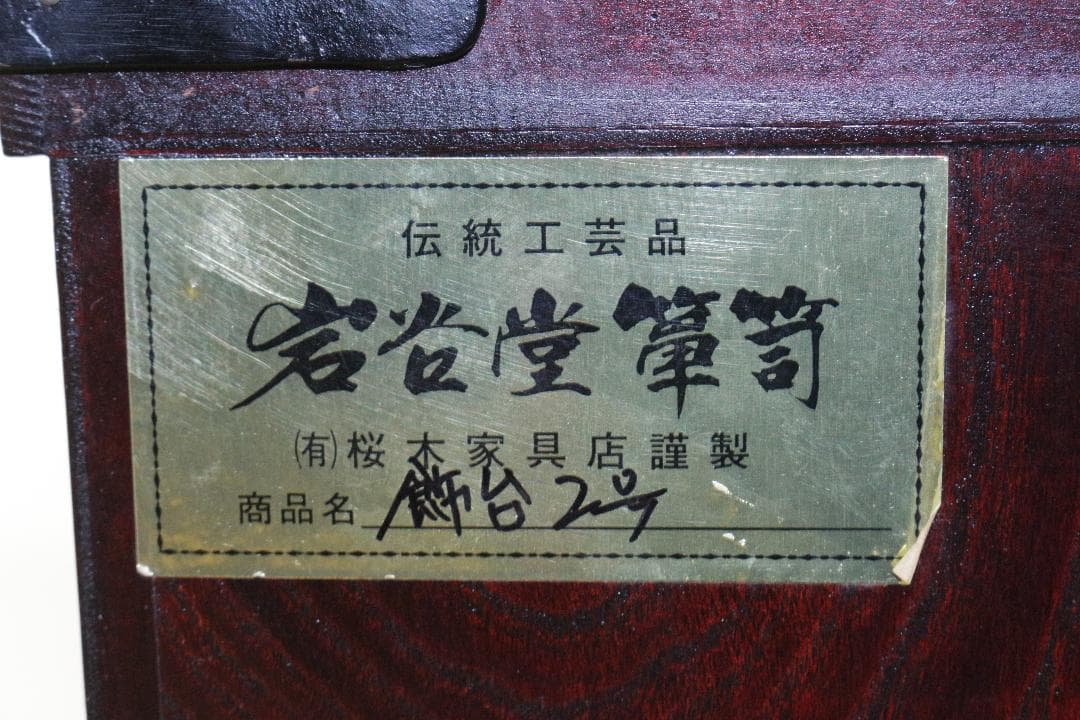 伝統工芸品
岩谷堂箪笥
㈲桜木家具店謹製
商品名 飾台2号